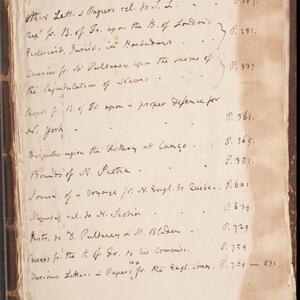 Other Lett. & Papers rel. to S. L. . .
Rep. fr. B. of Tr. upon the B. of London's
Ecclesiast. Jurisd. in Barbadoes . P. 281.
Queries fr. Mr Pulteney, upon the terms of
the Capitulation of . . . P. 337.
Repor. fr. B. of Tr. upon a proper Defence for
N. York . . . P. 361.
Disputes upon the Victory at Canço . P. 365.
Bounds of N. Scotia . . P. 381.
Journ. of a Voyage fr. N. Engl. to Quebec . P. 601
rel. to N. Scotia . . P. 634.
Instr. to D. Pulteney & M. Bladen . P. 729
fr. the K. of Fr. to his Commiss. . P. 754.
Various Letters & Papers fr. the Engl. Comm. P. 764 — 831.